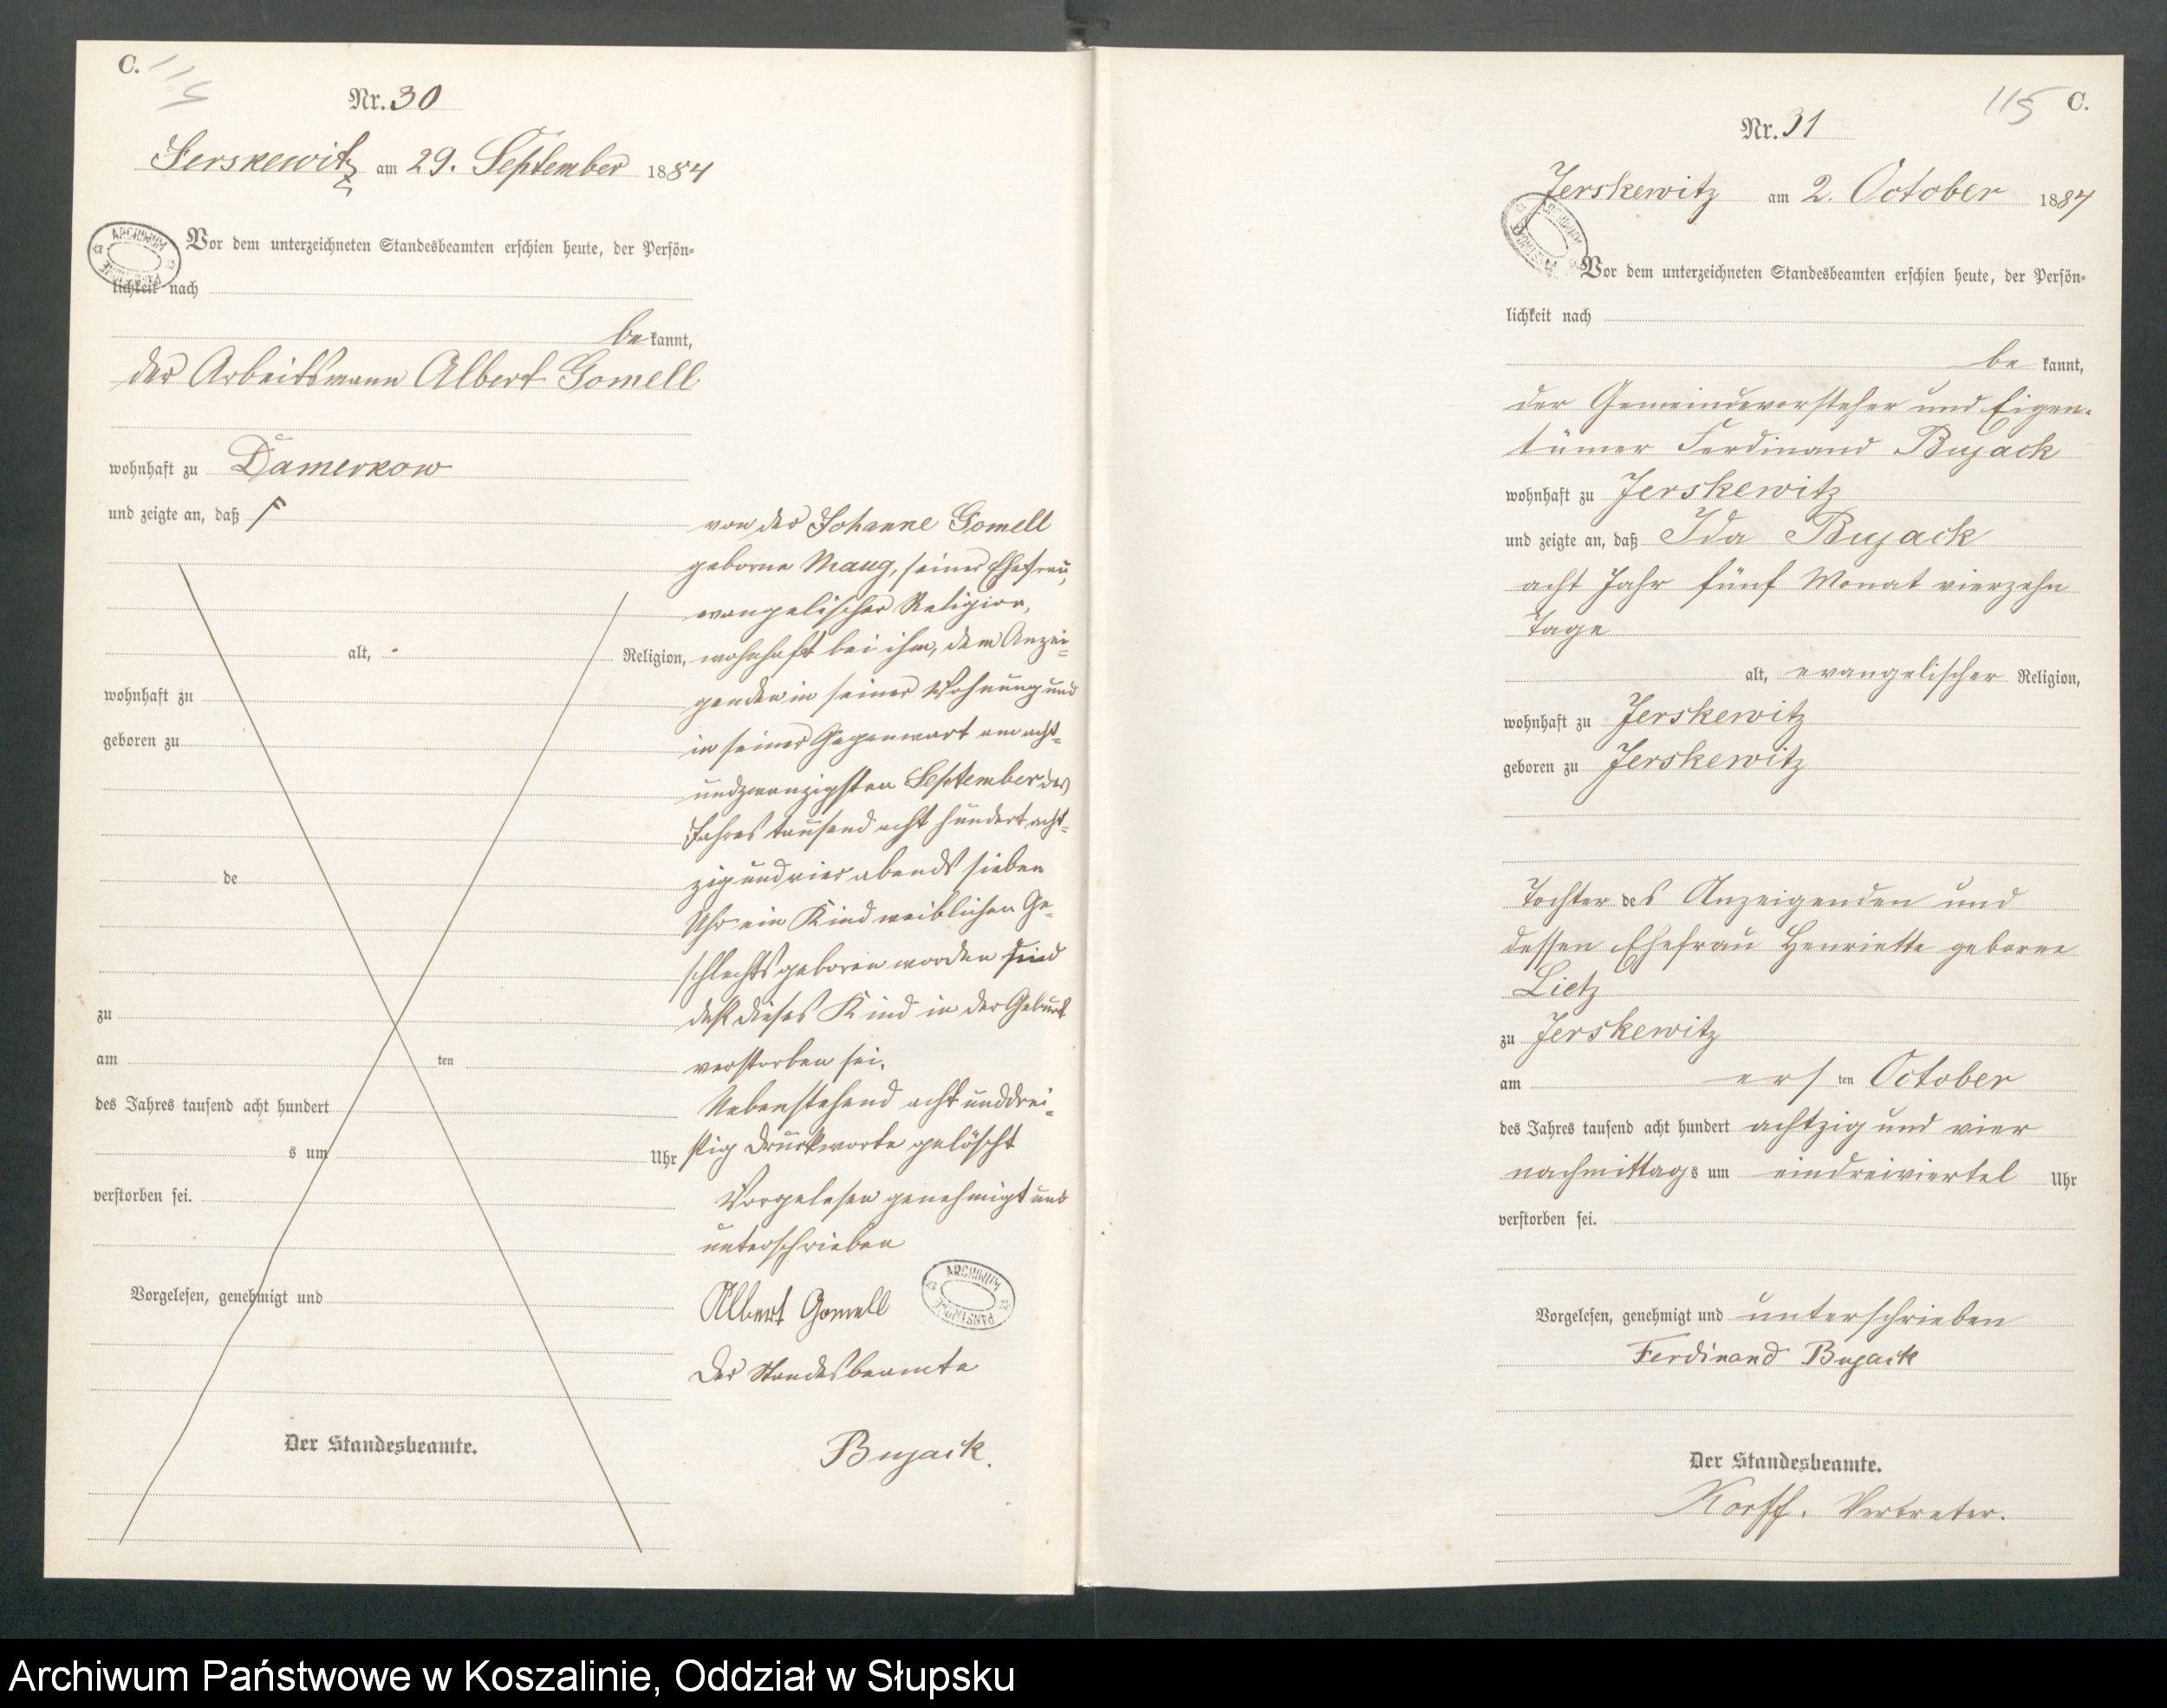 C. 115
Nr. 30
Jerskewitz am 29. September 1884
ARCHIWUM PAŃSTWOWE
Vor dem unterzeichneten Standesbeamten erschien heute, der Persön-
lichkeit nach
be kannt,
der Arbeitsmann Albert Gomell
wohnhaft zu Damerkow
und zeigte an, daß
alt, Religion,
wohnhaft zu
geboren zu
de
zu
am ten
des Jahres tausend acht hundert
s um Uhr
verstorben sei.
Vorgelesen, genehmigt und
Der Standesbeamte.
von der Johanne Gomell
geborne Maug, seiner Ehefrau,
evangelischer Religion,
wohnhaft bei ihm, dem Anzei-
genden in seiner Wohnung und
in seiner Gegenwart am acht-
undzwanzigsten September des
Jahres tausend acht hundert acht-
zig und vier abends sieben
Uhr ein Kind weiblichen Ge-
schlechts geboren worden und
daß dieses Kind in der Geburt
verstorben sei.
Nebenstehend acht und drei-
ßig Druckworte gelöscht
Vorgelesen genehmigt und
unterschrieben
Albert Gomell
ARCHIWUM PAŃSTWOWE
Der Standesbeamte
Bujack.
115 C.
Nr. 31
Jerskewitz am 2. October 1884
ARCHIWUM PAŃSTWOWE
Vor dem unterzeichneten Standesbeamten erschien heute, der Persön-
lichkeit nach
be kannt,
der Gemeindevorsteher und Eigen-
tümer Ferdinand Bujack
wohnhaft zu Jerskewitz
und zeigte an, daß Ida Bujack
acht Jahr fünf Monat vierzehn
Tage
alt, evangelischer Religion,
wohnhaft zu Jerskewitz
geboren zu Jerskewitz
Tochter des Anzeigenden und
dessen Ehefrau Henriette geborne
Lietz
zu Jerskewitz
am ers ten October
des Jahres tausend acht hundert achtzig und vier
nachmittags um eindreiviertel Uhr
verstorben sei.
Vorgelesen, genehmigt und unterschrieben
Ferdinand Bujack
Der Standesbeamte.
Korff. Vertreter.
Archiwum Państwowe w Koszalinie, Oddział w Słupsku